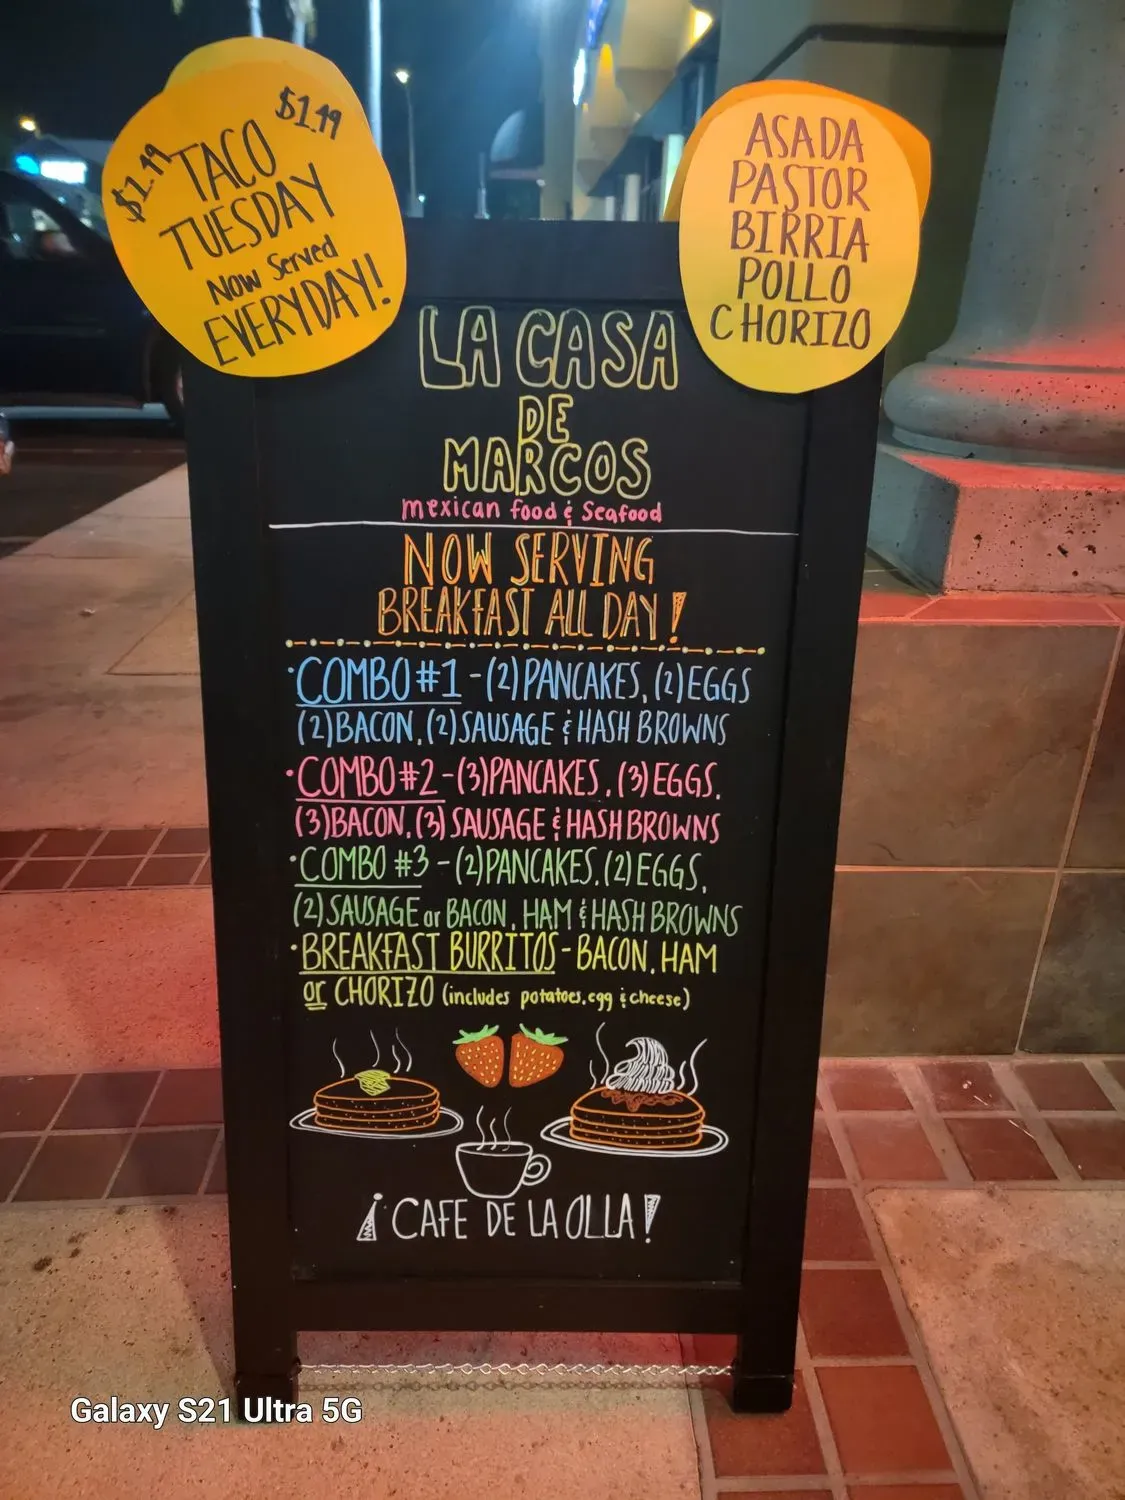 $1.99
$1.99
TACO
TUESDAY
NOW Served
EVERYDAY!
ASADA
PASTOR
BIRRIA
POLLO
CHORIZO
LA CASA
DE
MARCOS
mexican food & Seafood
NOW SERVING
BREAKFAST ALL DAY!
·COMBO #1 - (2) PANCAKES, (2) EGGS
(2) BACON, (2) SAUSAGE & HASH BROWNS
·COMBO #2 - (3) PANCAKES, (3) EGGS,
(3) BACON, (3) SAUSAGE & HASH BROWNS
·COMBO #3 - (2) PANCAKES, (2) EGGS,
(2) SAUSAGE or BACON, HAM & HASH BROWNS
·BREAKFAST BURRITOS - BACON, HAM
or CHORIZO (includes potatoes, egg & cheese)
¡CAFE DE LA OLLA!
Galaxy S21 Ultra 5G